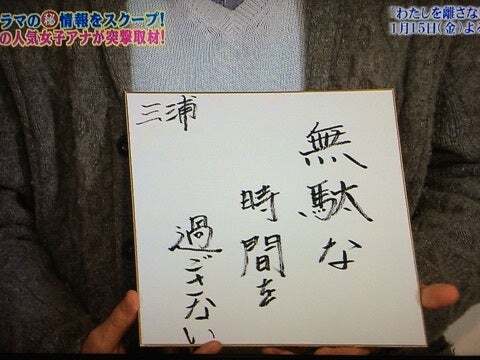 ラマの㊙情報をスクープ!
の人気女子アナが突撃取材!
わたしを離さな
1月15日(金)よ
三浦
無駄な
時間を
過ごさない